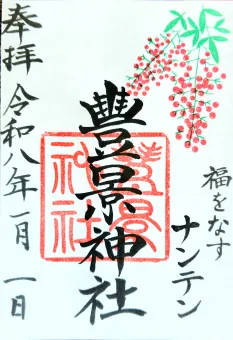 奉拝
令和八年一月一日
豊景神社
豊景神社
福をなす
ナンテン